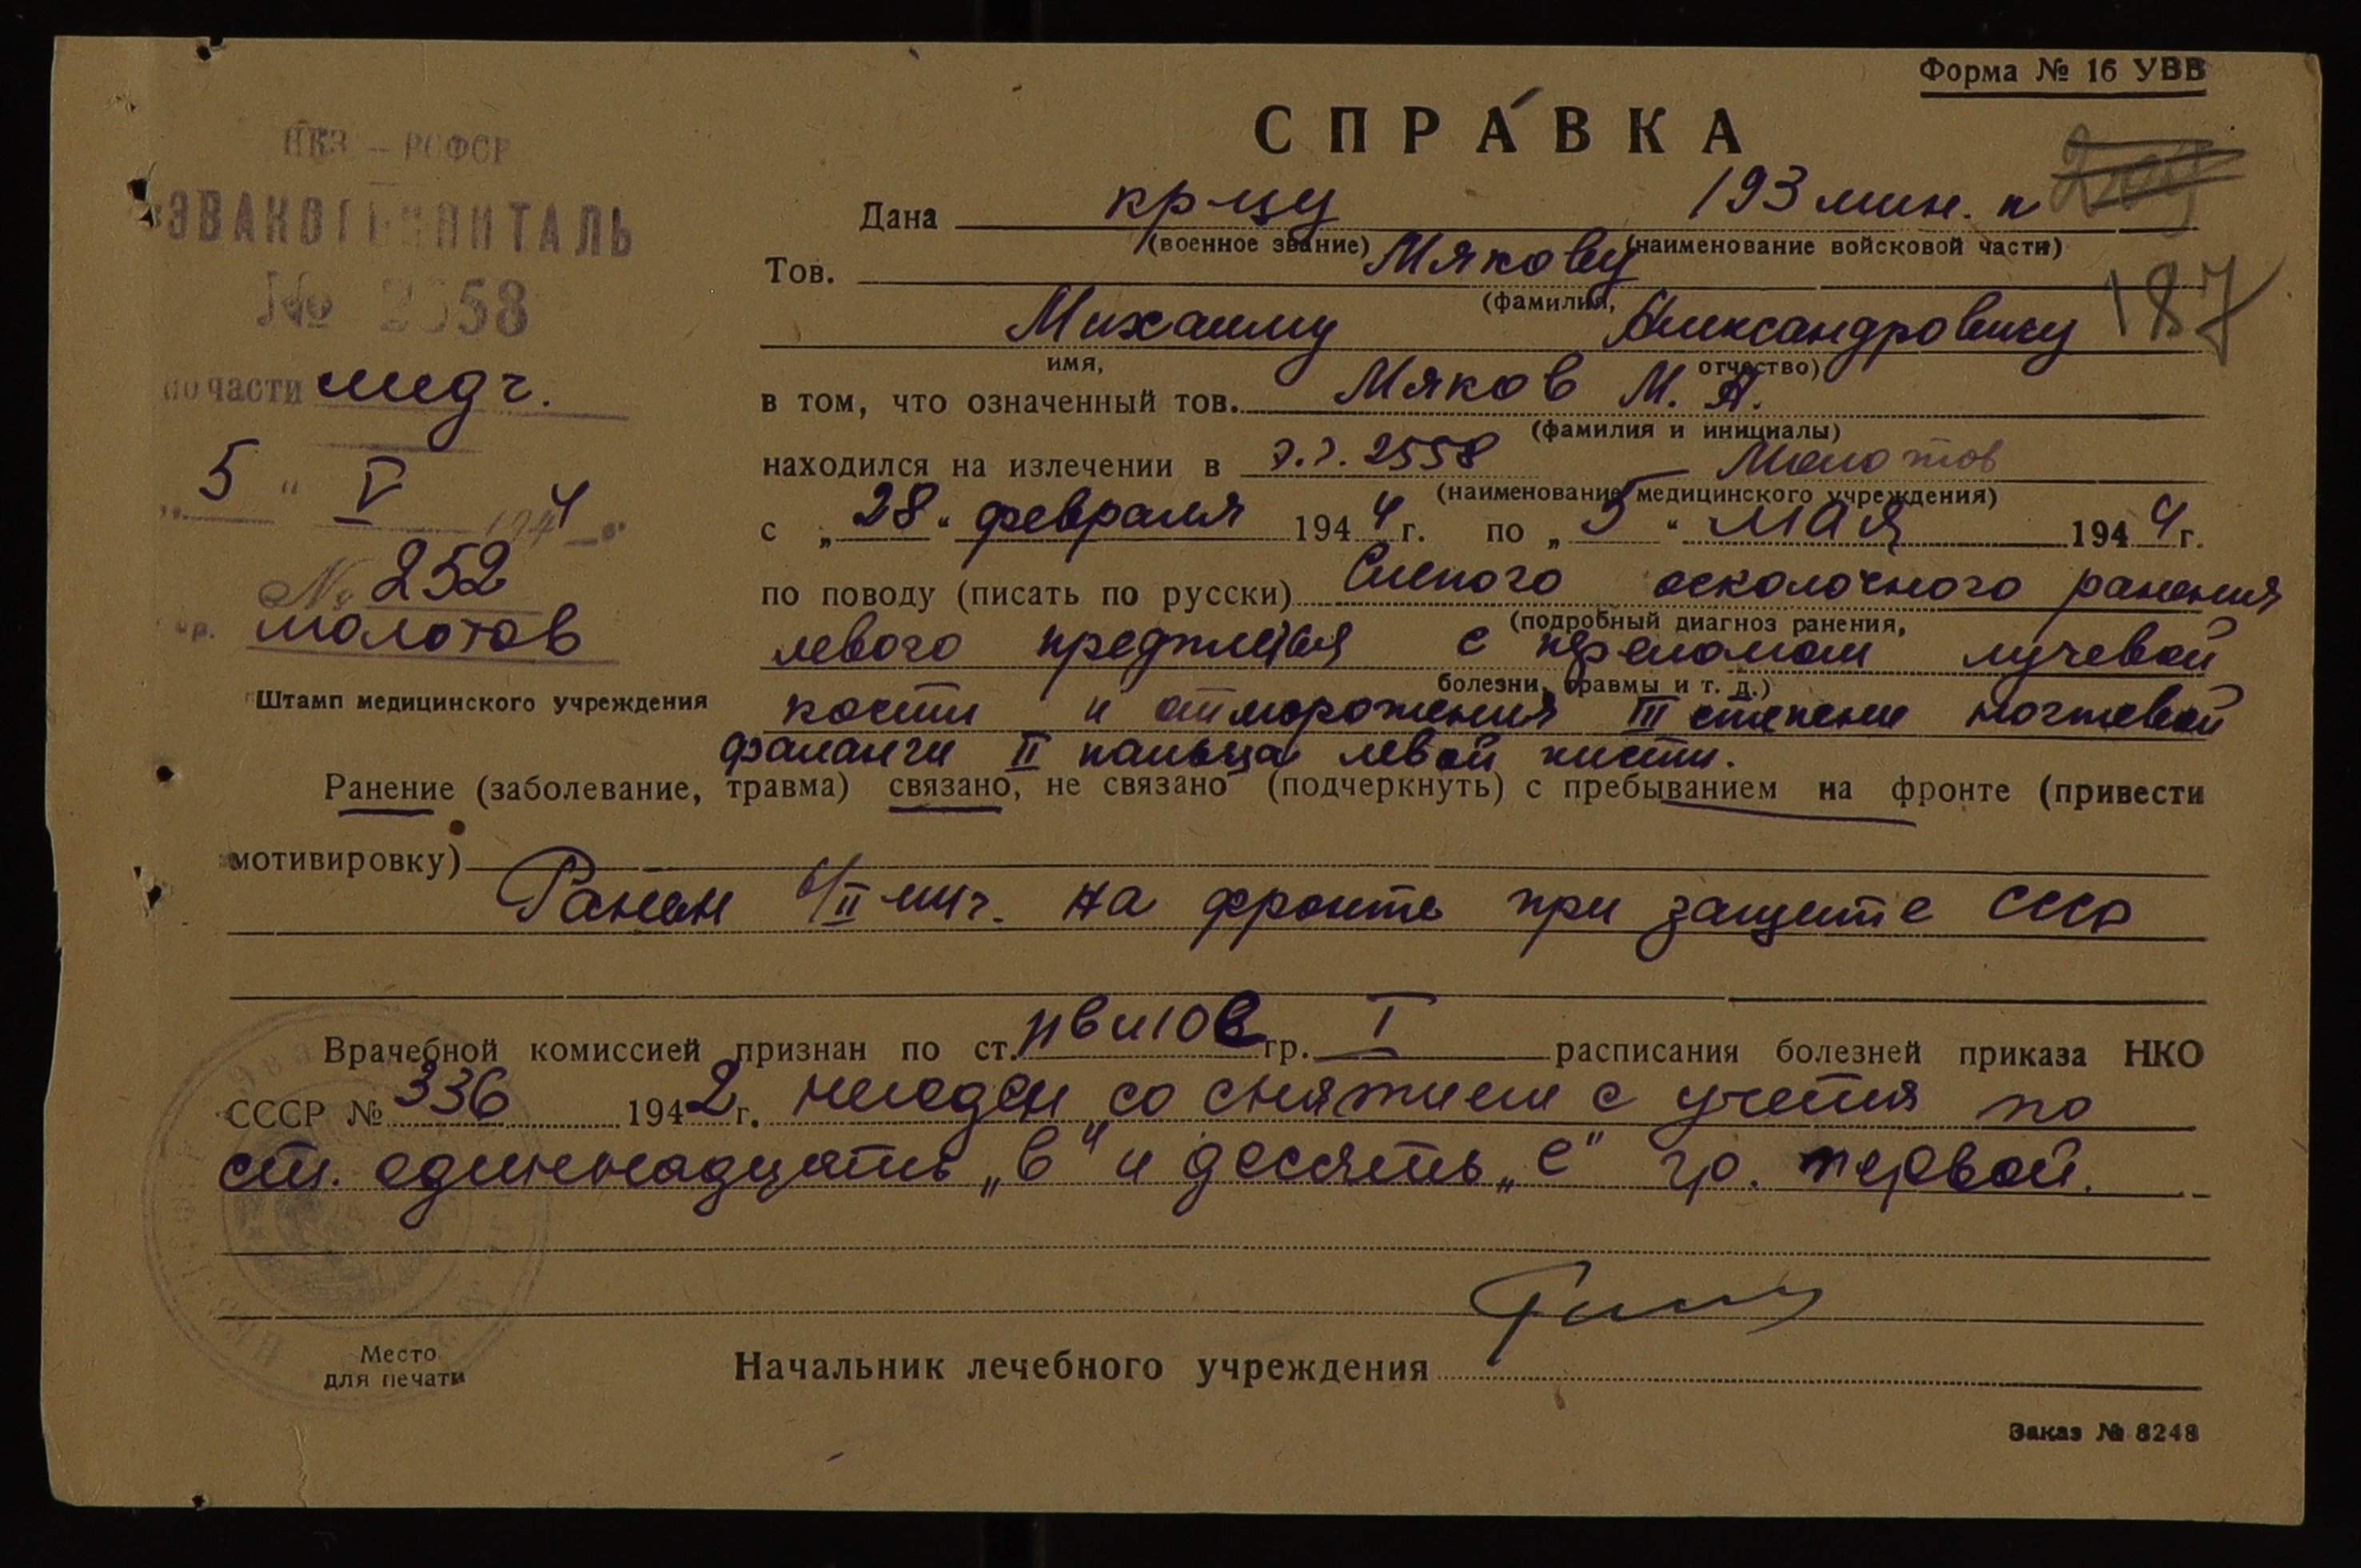 Форма № 16 УВВ
СПРАВКА
НКЗ – РСФСР
ЭВАКОГОСПИТАЛЬ
№ 2558
по части мед ч.
„5“ V 1944 г.
№ 252
гр. Молотов
Штамп медицинского учреждения
209
Дана кр-цу 193 мин. п
(военное звание) (наименование войсковой части)
Тов. Мякову
(фамилия,
187
Михаилу Александровичу
имя, отчество)
в том, что означенный тов. Мяков М. А.
(фамилия и инициалы)
находился на излечении в э.г. 2558 – Молотов
(наименование медицинского учреждения)
с „28“ февраля 1944 г. по „5“ мая 1944 г.
по поводу (писать по русски) Слепого осколочного ранения
(подробный диагноз ранения,
левого предплечья с переломом лучевой
болезни, травмы и т. д.)
кости и отморожения III степени ногтевой
фаланги II пальца левой кисти.
Ранение (заболевание, травма) связано, не связано (подчеркнуть) с пребыванием на фронте (привести
мотивировку)
Ранен 6/II-44г. на фронте при защите СССР
Врачебной комиссией признан по ст. 11в и 10е гр. I расписания болезней приказа НКО
СССР № 336 1942 г. негоден со снятием с учета по
ст. одиннадцать „в“ и десять „е“ гр. первой.
Начальник лечебного учреждения
Место
для печати
Заказ № 8248